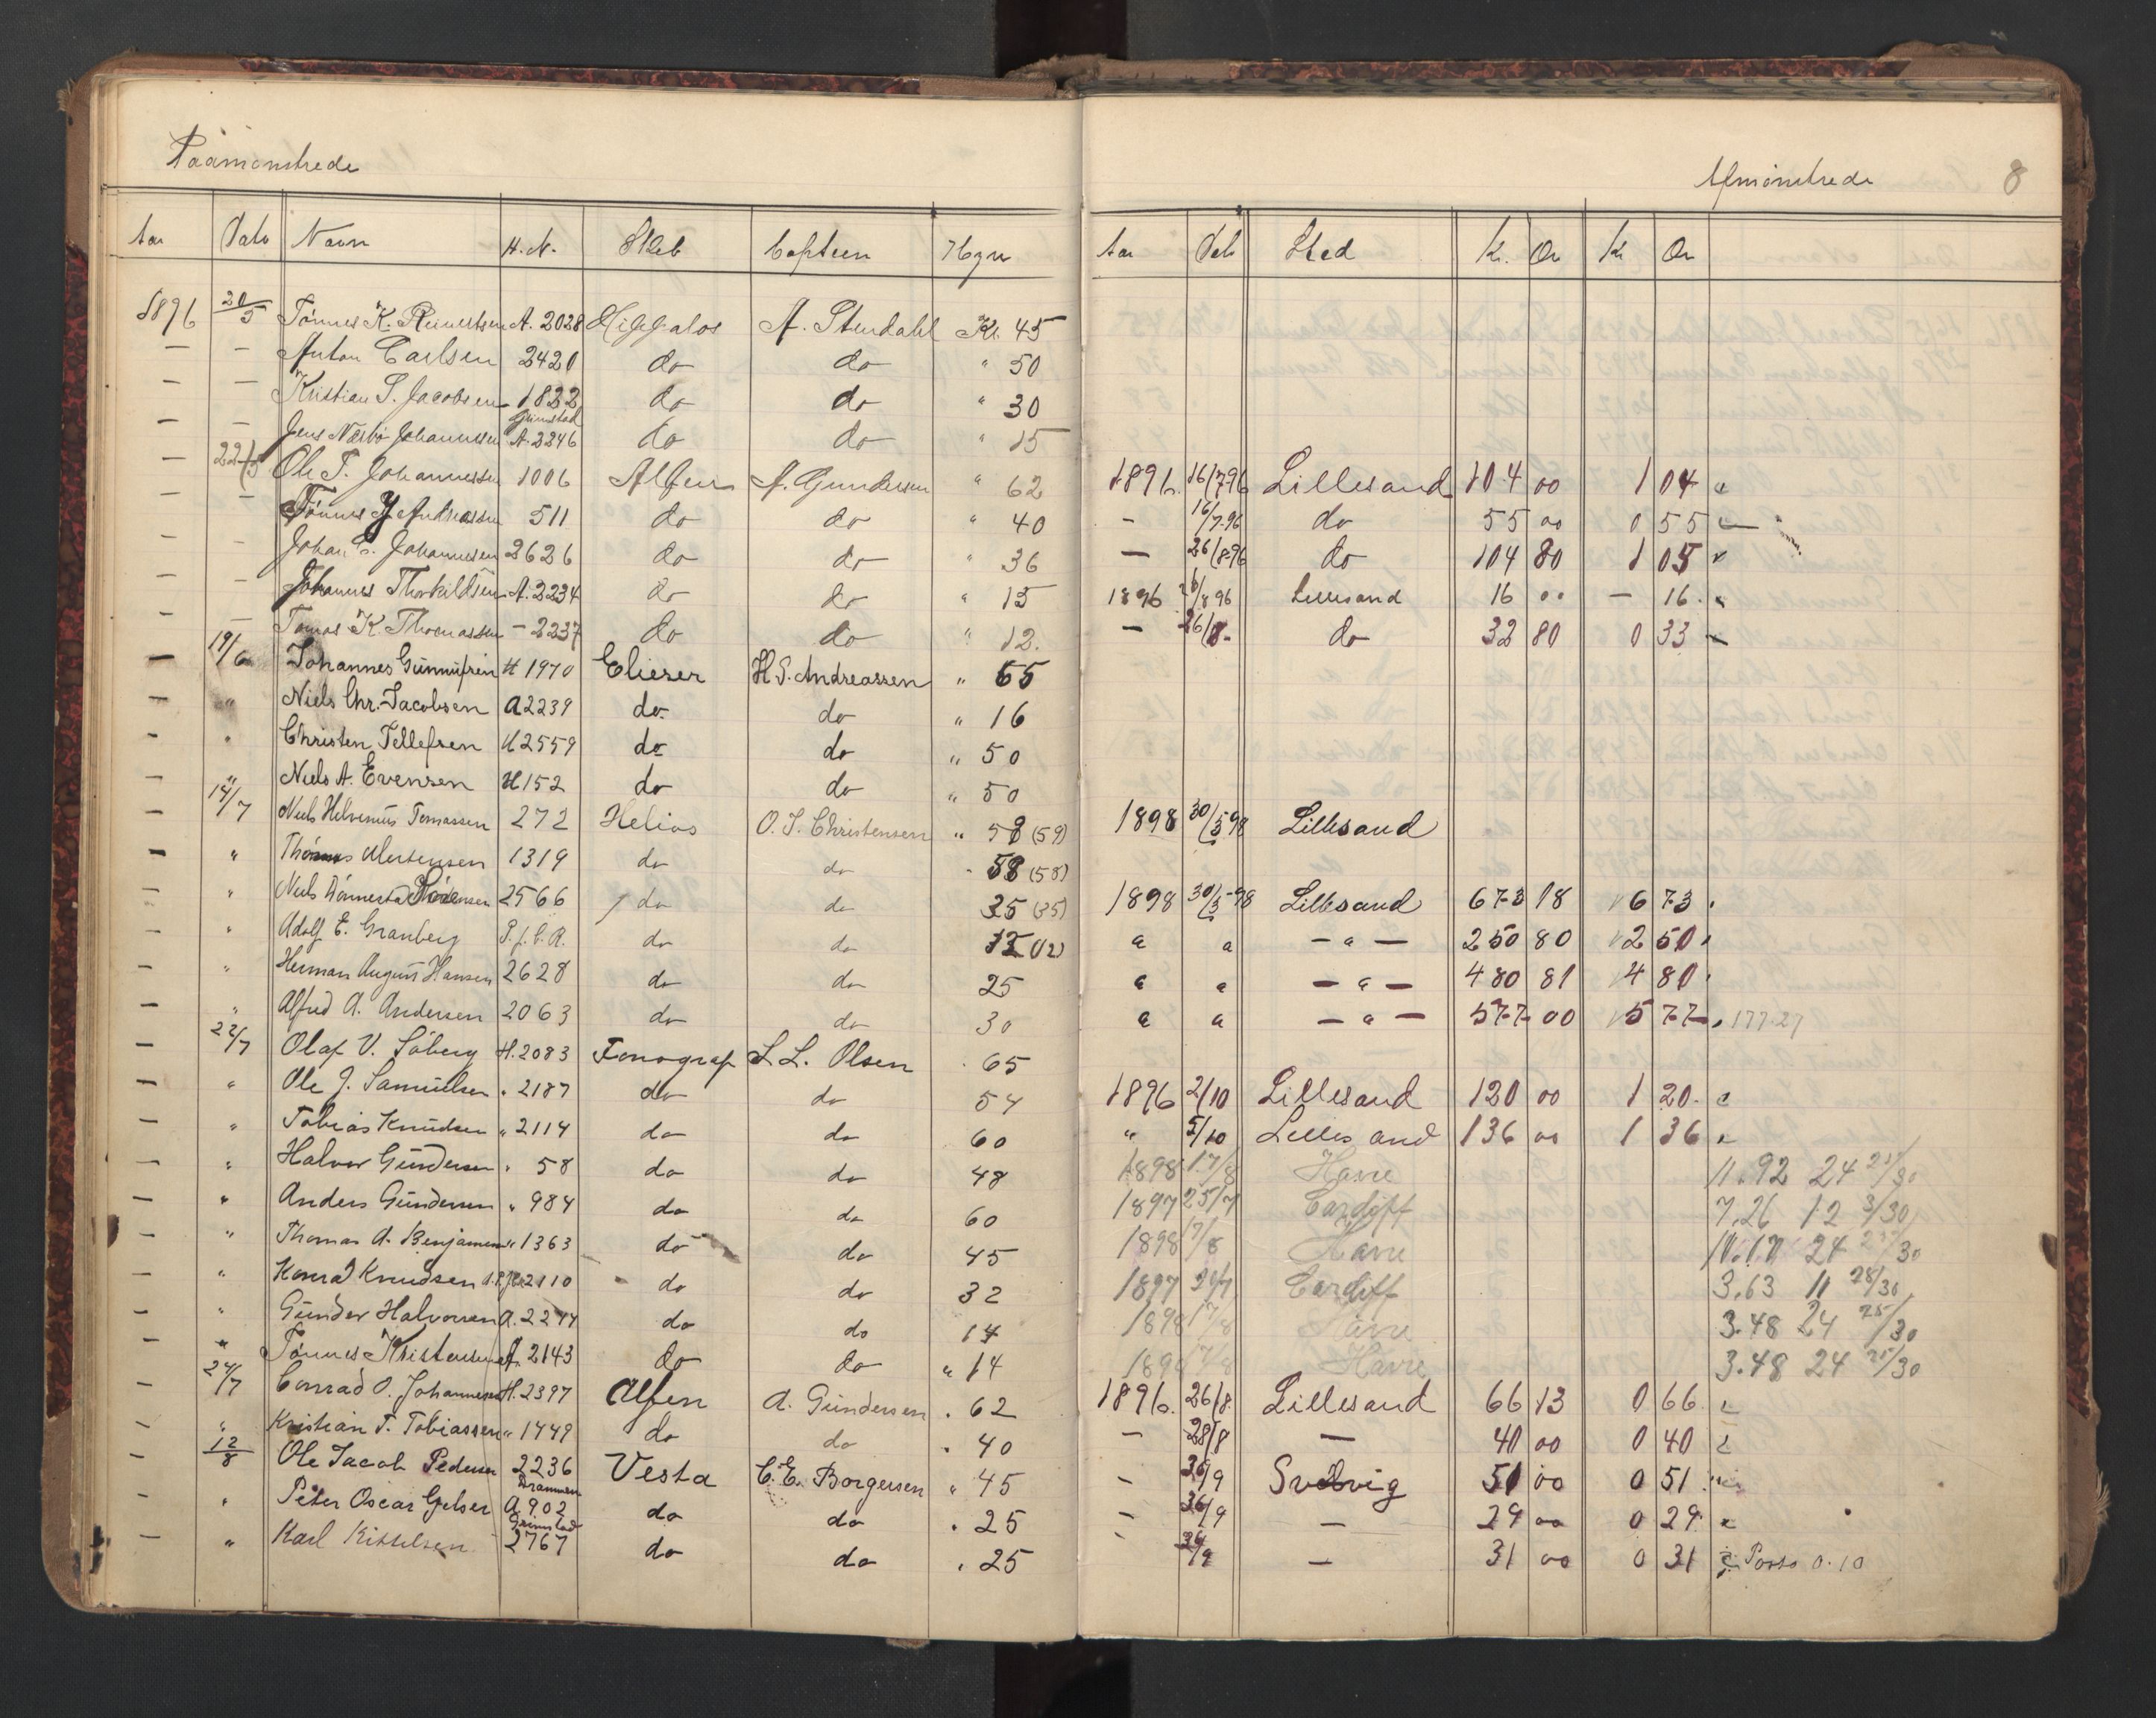 Paamønstrede
Afmønstrede 8
Aar Dato Navn H.N. Skib Captein Hyre Aar Dato Sted Kr. Ør Kr Ør
1896 20/5 Tønnes K. Reinertsen A. 2028 A. Stendahl Kr. 45
— — Anton Carlsen 2420 do do " 50
— — Kristian S. Jacobsen 1822 do do " 30
Grimstad
— — Jens Næsbø Johannssen A. 2246 do do " 15
— 22/5 Ole T. Johannessen 1006 Alfen A. Gundersen " 62 1896. 16/7-96 Lillesand 104 00 1 04 "
— — Tønnes Andreassen 511 do do " 40 — 16/7-96 do 55 00 0 55 "
— — Johan C. Johannessen 2626 do do " 36 — 26/8-96 do 104 80 1 05 "
— — Johannes Thorkildsen A. 2234 do do " 15 1896 26/8 96 Lillesand 16 00 — 16. "
— — Tomas K. Thomassen — 2237 do do " 12. — 26/8- do 32 80 0 33 "
— 19/6 Johannes Gunnufsen H 1970 Elieser H. S. Andreassen " 55
— " Niels Chr. Jacobsen A 2239 do. do " 16
— " Christen Tellefsen H 2559 do do " 50
— " Niels A. Evensen H 152 do do " 50
— 14/7 Niels Helvinius Tomassen 272 Helios O. S. Christensen " 58 (59) 1898 30/5-98 Lillesand
— " Thomas Mortensen 1319 do do " 58 (58)
— " Niels 2566 do do 35 (35) 1898 30/5-98 Lillesand 673 18 6 73 "
— " Adolf E. Granberg P. f. C. R. do do 12 (12) " " — " — 250 80 2 50 "
— " Herman August Hansen 2628 do do 25 " " — " — 480 81 4 80 "
— " Alfred A. Andersen 2063 do do 30 " " — " — 577 00 5 77 " 177.27
— 22/7 Olaf V. Søberg H. 2083 Fonograf L. L. Olsen . 65
— " Ole J. Samuelsen " 2187 do do 54 1896 2/10 Lillesand 120 00 1 20. "
— " Tobias Knudsen " 2114 do do 60 " 5/10 Lillesand 136 00 1 36 "
— " Halvor Gundersen " 58 do do 48 1898 17/8 Havre 11.92 24 25/30
— " Anders Gundersen " 984 do do 60 1897 25/7 Cardiff 7.26 12 3/30
— " Thomas A. Benjaminsen " 1363 do do 45 1898 17/8 Havre 24 25/30
— " Konrad Knudsen 2110 do do 32 1897 Cardiff 3.63 11 28/30
— " Gunder Halvorsen A. 2244 do do 14 1898 17/8 Havre 3.48 24 25/30
— " Tønnes Kristensen A. 2143 do do " 14 1898 17/8 Havre 3.48 24 25/30
— 24/7 Conrad O. Johannessen H. 2397 Alfen A. Gundersen . 62 1896. 26/8. Lillesand 66 13 0 66. "
— " Kristian T. Tobiassen " 1449 do do . 40 — 28/8 — 40 00 0 40 "
— 12/8 Ole Jacob Pedersen 2236 Vesta C. E. Borgersen " 45 — 26/9 Svelvig 51 00 0 51. "
Drammen
— " Peter Oscar Gelser A. 902 do do . 25 — 26/9 — 29 00 0 29. "
Grimstad
— " Karl Kittelsen 2767 do do . 25 26/9 — 31 00 0 31 " Porto 0.10